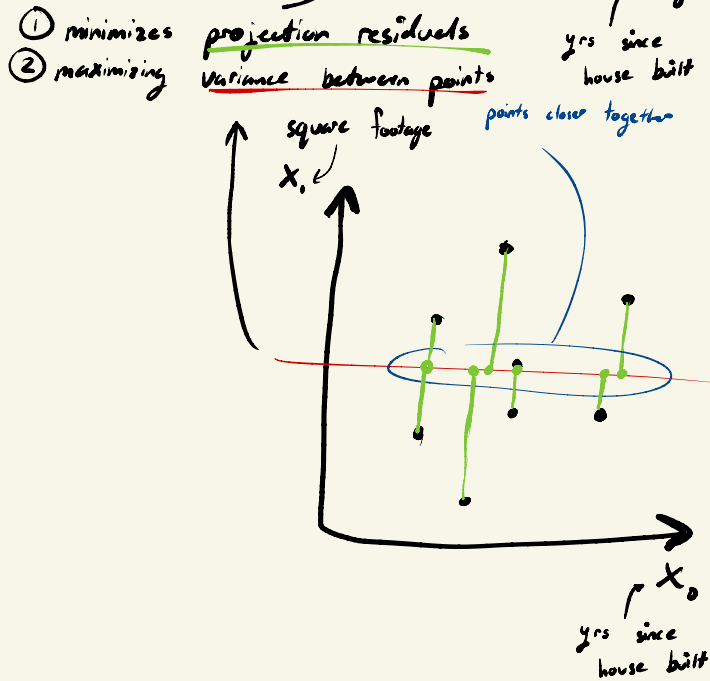 ① minimizes projection residuals
② maximizing variance between points
yrs since
house built
square footage
points closer together
X₁
X₀
yrs since
house built